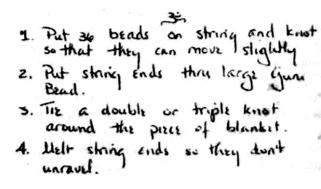 ॐ
1. Put 36 beads on string and knot
so that they can move slightly
2. Put string ends thru large Guru
Bead.
3. Tie a double or triple knot
around the piece of blanket.
4. Melt string ends so they don't
unravel.